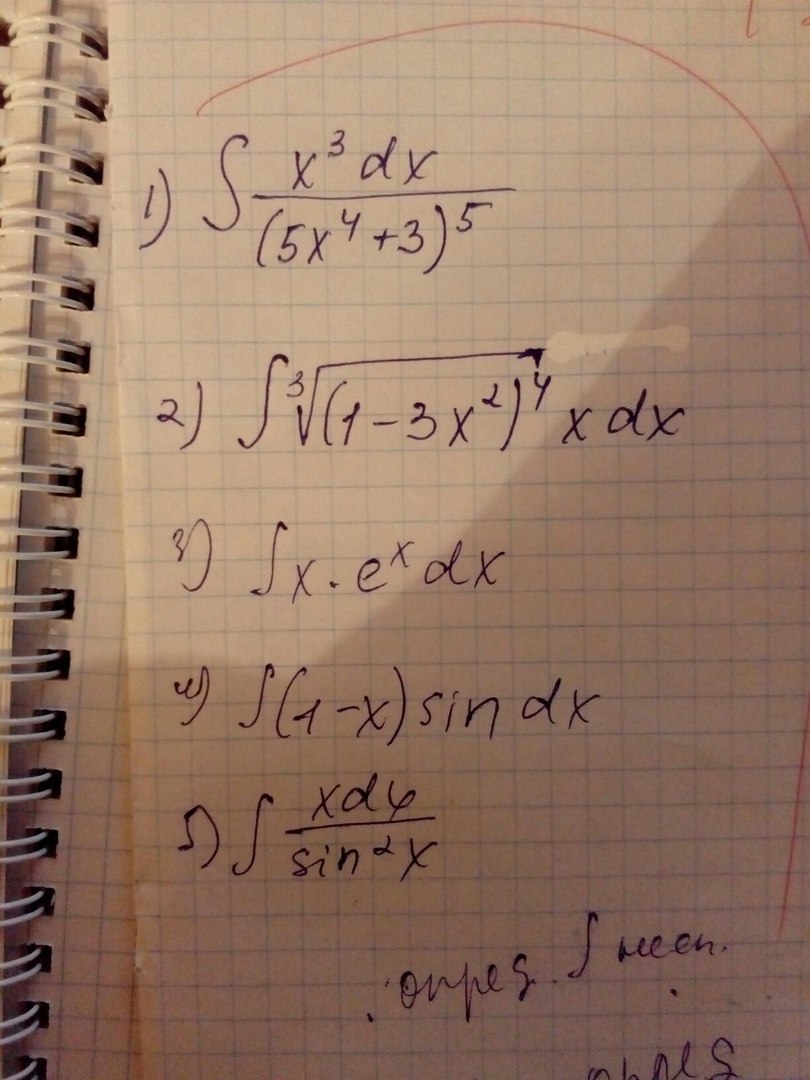 1) ∫ x³ dx / (5x⁴+3)⁵
2) ∫ ∛(1-3x²)⁴ x dx
3) ∫ x · eˣ dx
4) ∫ (1-x) sin dx
5) ∫ xdx / sin²x
опред. ∫
опред